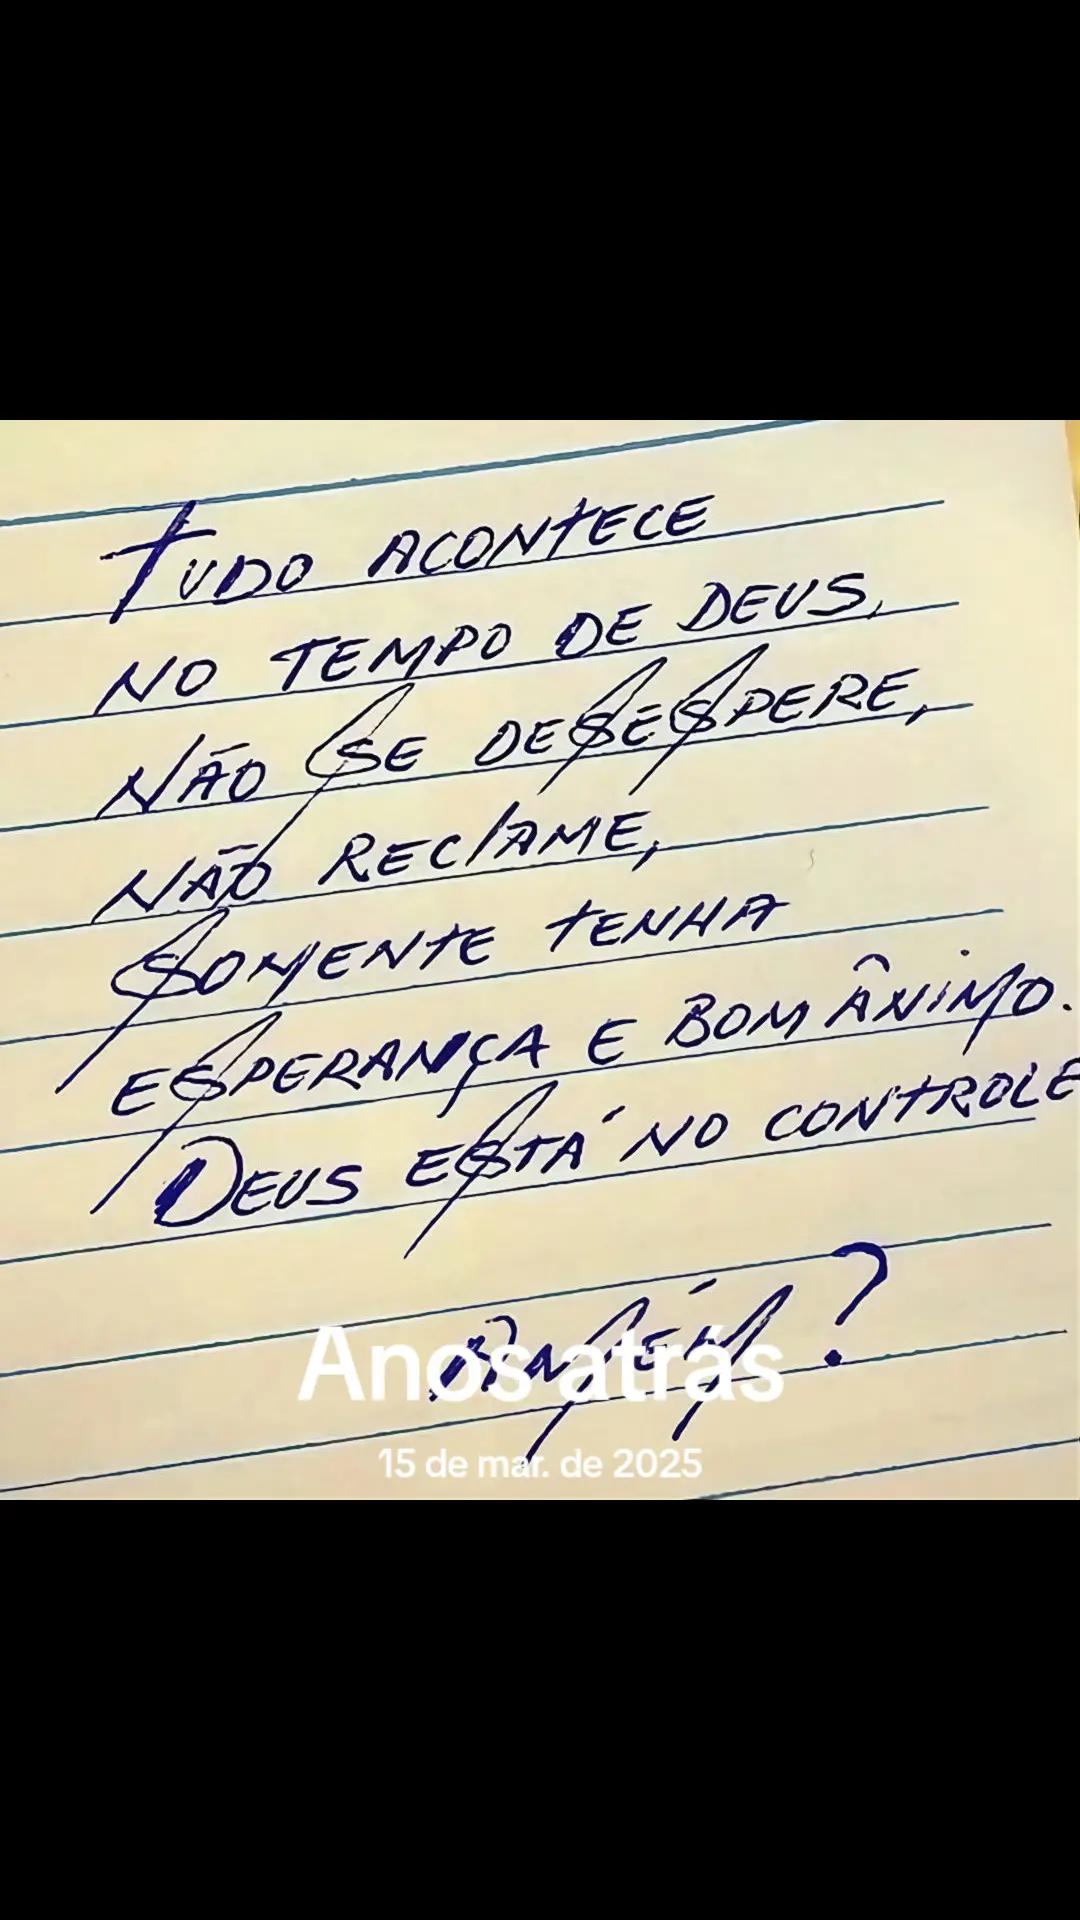 TUDO ACONTECE
NO TEMPO DE DEUS,
NÃO SE DESESPERE,
NÃO RECLAME,
SOMENTE TENHA
ESPERANÇA E BOM ÂNIMO.
DEUS ESTÁ NO CONTROLE
AMÉM?
Anos atrás
15 de mar. de 2025